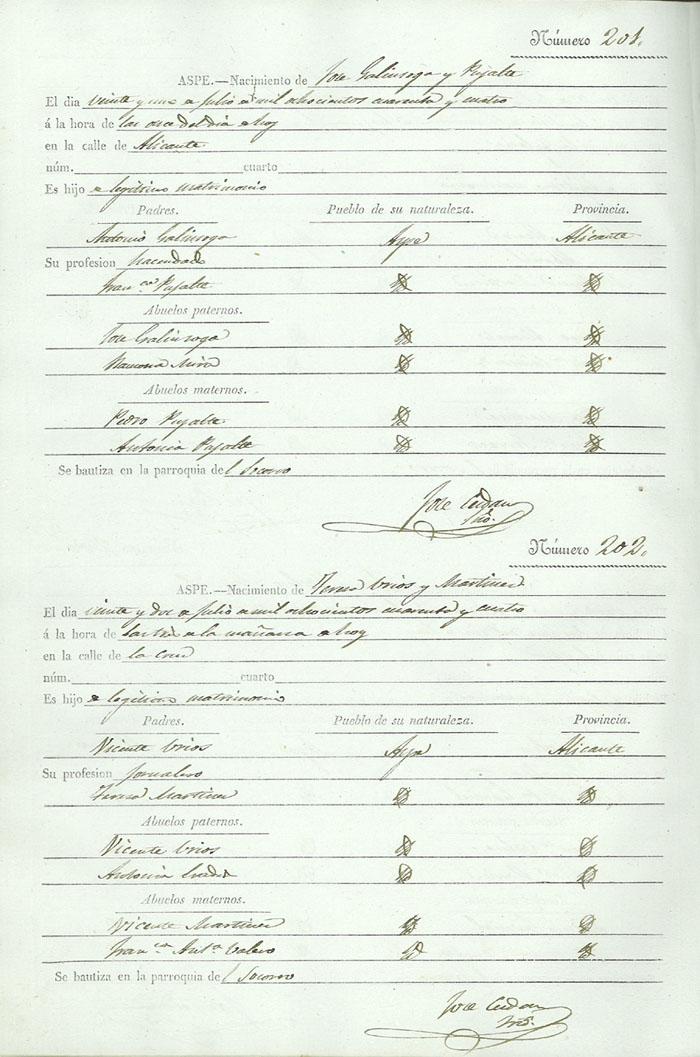 Número 201.
ASPE.—Nacimiento de Jose Galinsoga y Pujalte
El dia veinte y uno de Julio de mil ochocientos cuarenta y cuatro
á la hora de las once del dia de hoy
en la calle de Alicante
núm. cuarto
Es hijo de legitimo matrimonio
Padres. Pueblo de su naturaleza. Provincia.
Antonio Galinsoga Aspe Alicante
Su profesion hacendado
Franca Pujalte
Abuelos paternos.
Jose Galinsoga
Ramona Mira
Abuelos maternos.
Pedro Pujalte
Antonia Pujalte
Se bautiza en la parroquia del Socorro
Jose
Número 202.
ASPE.—Nacimiento de Teresa Urios y Martinez
El dia veinte y dos de Julio de mil ochocientos cuarenta y cuatro
á la hora de las tres de la mañana de hoy
en la calle de la Cruz
núm. cuarto
Es hijo de legitimo matrimonio
Padres. Pueblo de su naturaleza. Provincia.
Vicente Urios Aspe Alicante
Su profesion jornalero
Teresa Martinez
Abuelos paternos.
Vicente Urios
Antonia
Abuelos maternos.
Vicente Martinez
Franca Anta Valero
Se bautiza en la parroquia del Socorro
Jose